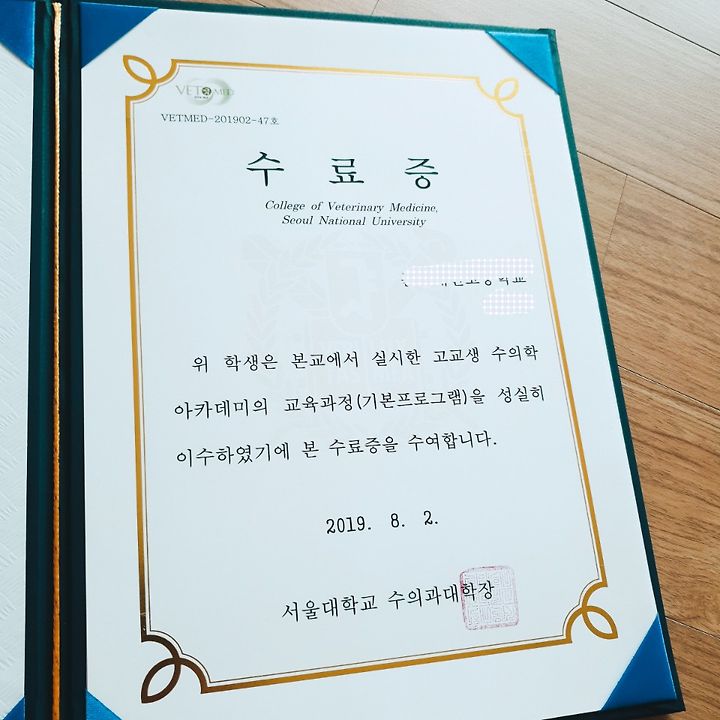 VET MED
VETMED-201902-47호
수 료 증
College of Veterinary Medicine,
Seoul National University
위 학생은 본교에서 실시한 고교생 수의학
아카데미의 교육과정(기본프로그램)을 성실히
이수하였기에 본 수료증을 수여합니다.
2019. 8. 2.
서울대학교 수의과대학장